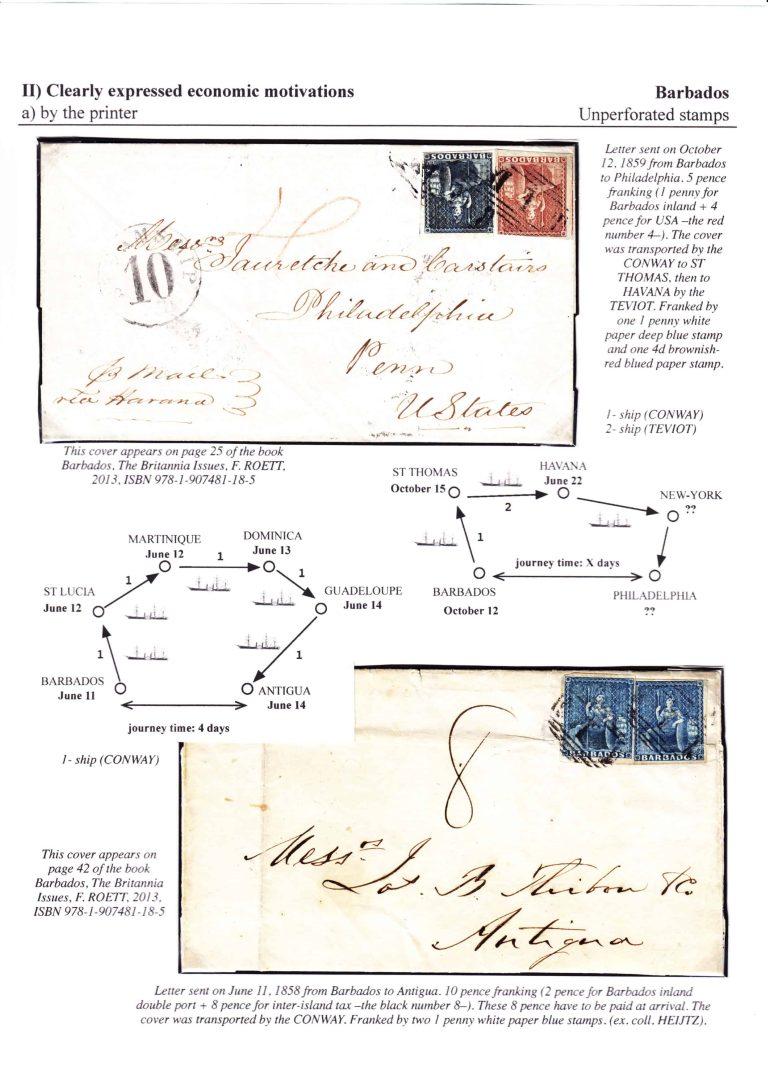 II) Clearly expressed economic motivations
Barbados
a) by the printer
Unperforated stamps
BARBADOS
BARBADOS
Messrs
Jauretche and Carstairs
Philadelphia
Penn
U States
10
4
Mail
via Havana
Letter sent on October
12, 1859 from Barbados
to Philadelphia. 5 pence
franking (1 penny for
Barbados inland + 4
pence for USA –the red
number 4–). The cover
was transported by the
CONWAY to ST
THOMAS, then to
HAVANA by the
TEVIOT. Franked by
one 1 penny white
paper deep blue stamp
and one 4d brownish-
red blued paper stamp.
1- ship (CONWAY)
2- ship (TEVIOT)
This cover appears on page 25 of the book
Barbados, The Britannia Issues, F. ROETT,
2013, ISBN 978-1-907481-18-5
ST THOMAS
October 15
HAVANA
June 22
NEW-YORK
??
2
1
journey time: X days
BARBADOS
October 12
PHILADELPHIA
??
MARTINIQUE
June 12
DOMINICA
June 13
1
1
1
ST LUCIA
June 12
GUADELOUPE
June 14
1
1
BARBADOS
June 11
ANTIGUA
June 14
journey time: 4 days
1- ship (CONWAY)
BARBADOS
BARBADOS
8
Messrs J
B. Thibou & Co
Antigua
This cover appears on
page 42 of the book
Barbados, The Britannia
Issues, F. ROETT, 2013,
ISBN 978-1-907481-18-5
Letter sent on June 11, 1858 from Barbados to Antigua. 10 pence franking (2 pence for Barbados inland
double port + 8 pence for inter-island tax –the black number 8–). These 8 pence have to be paid at arrival. The
cover was transported by the CONWAY. Franked by two 1 penny white paper blue stamps. (ex. coll. HEIJTZ).